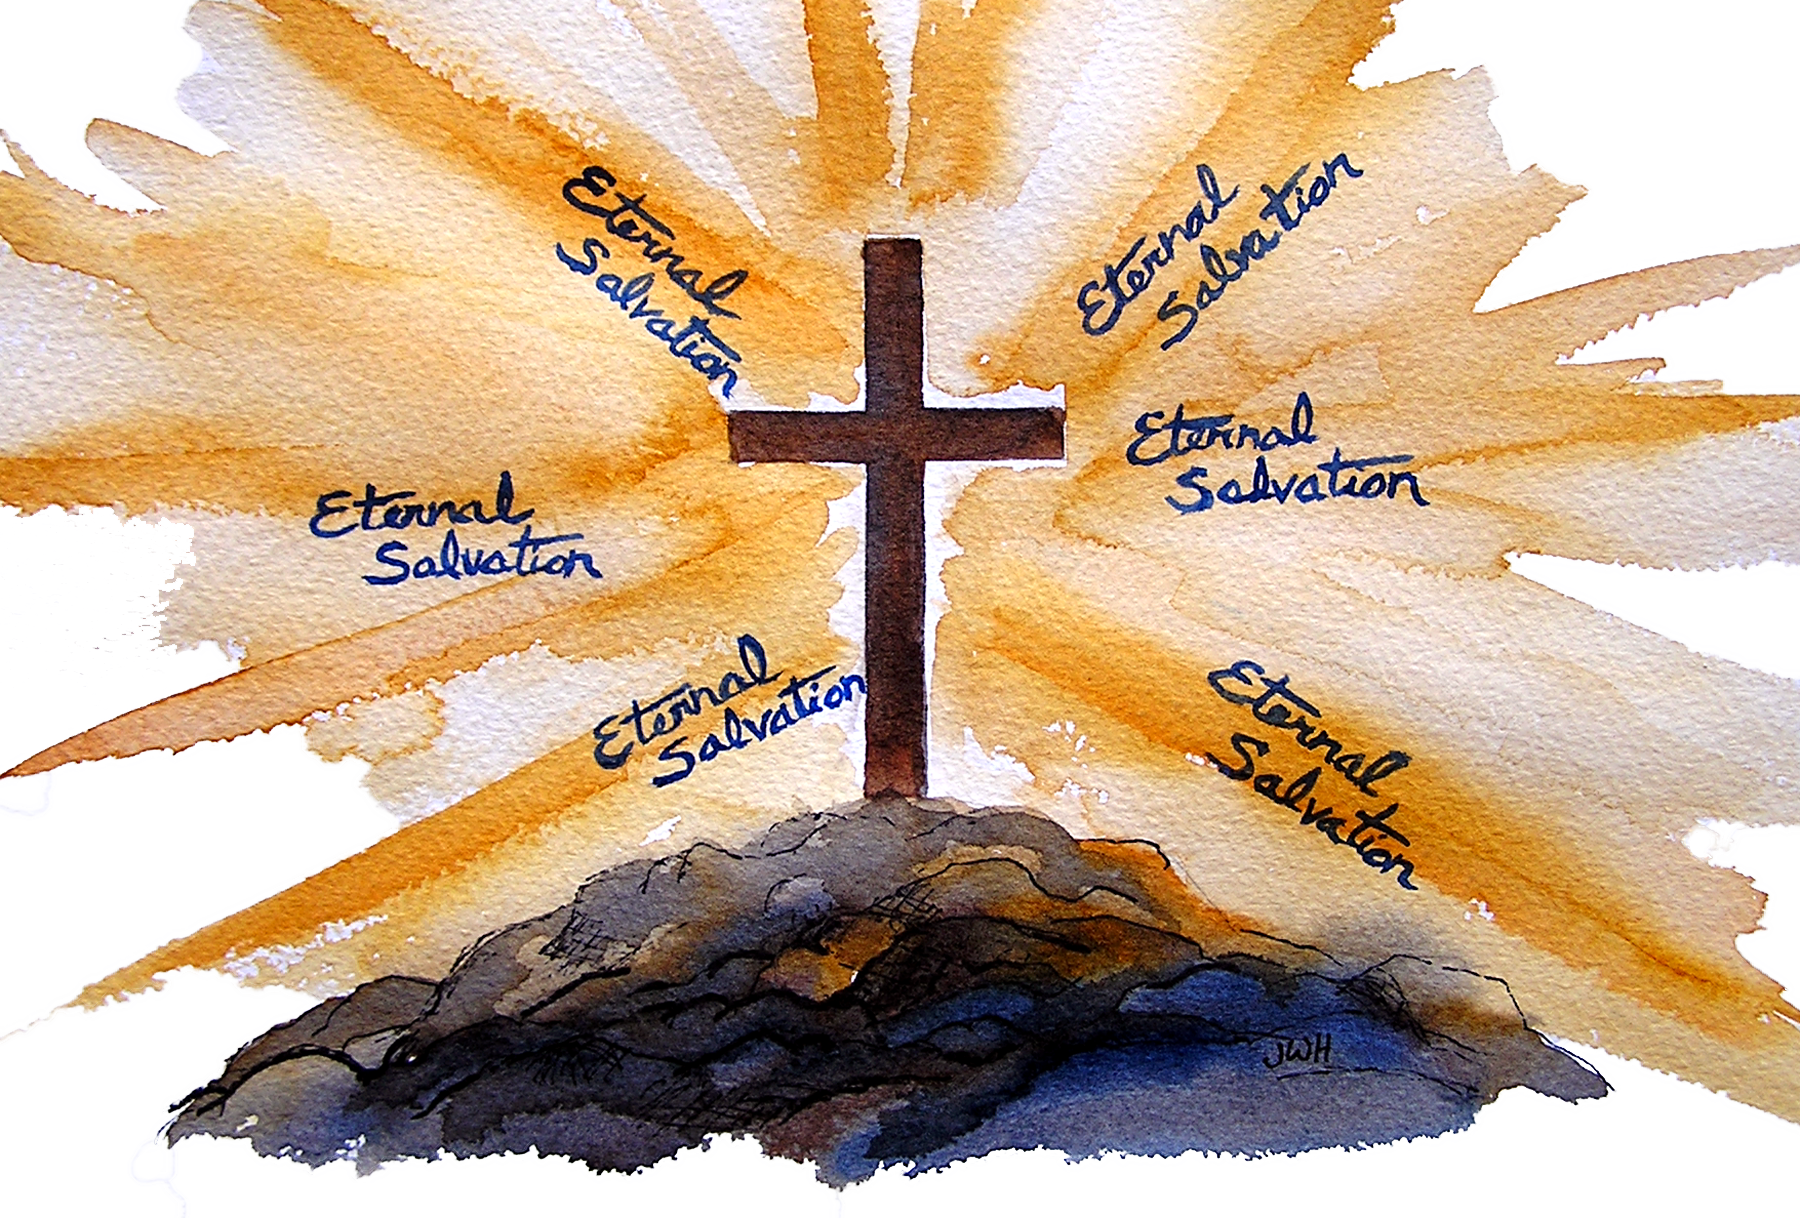 Eternal
Salvation
Eternal
Salvation
Eternal
Salvation
Eternal
Salvation
Eternal
Salvation
Eternal
Salvation
JWH